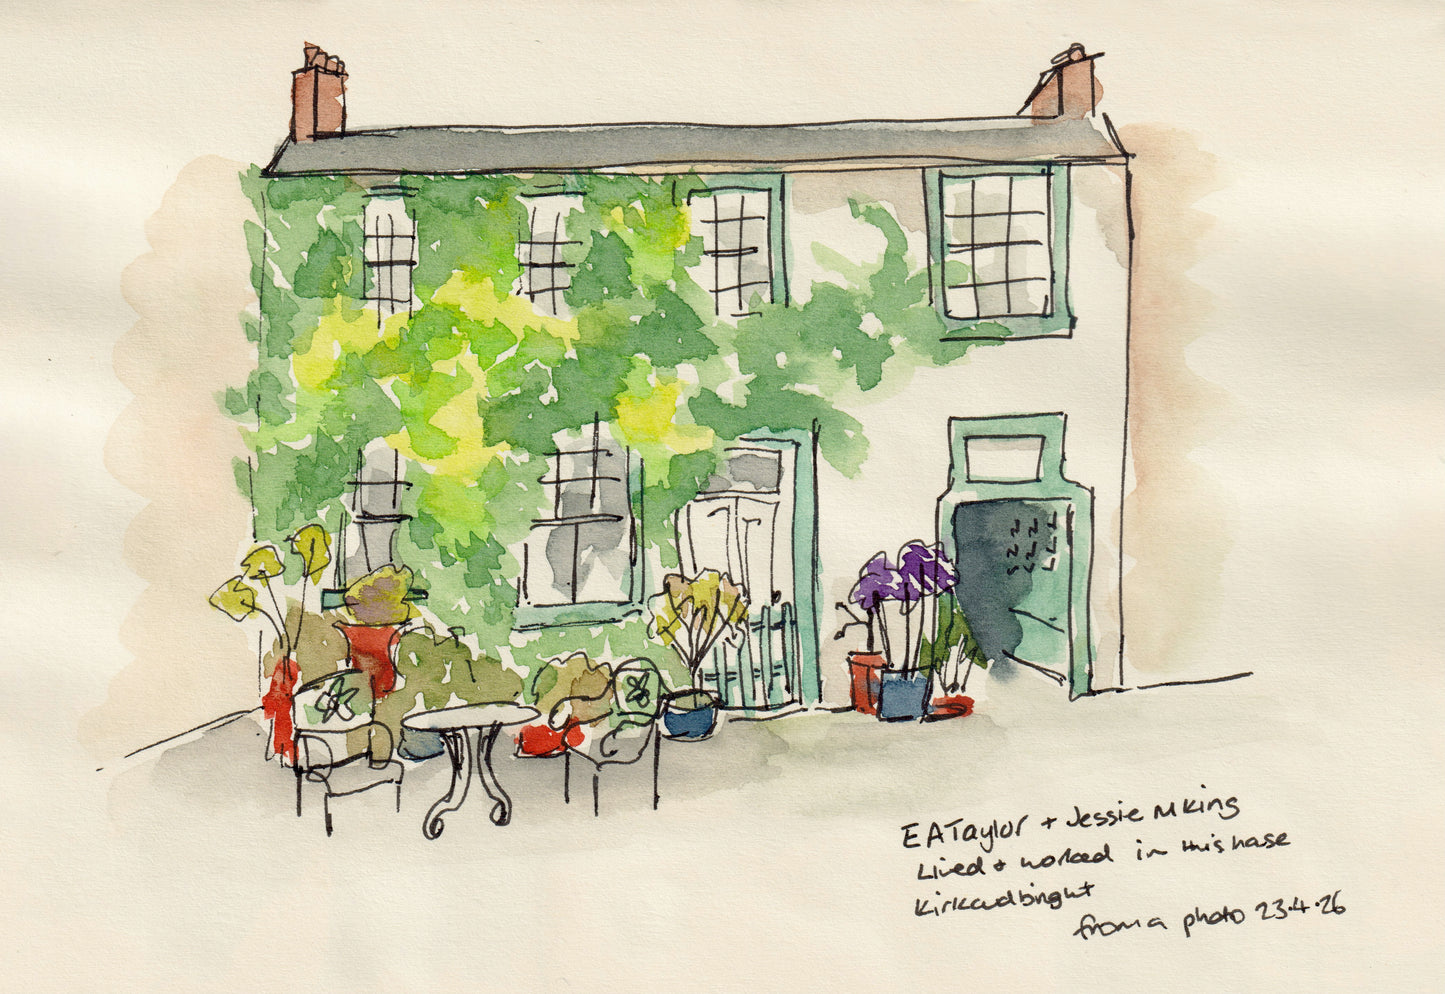 EATaylor + Jessie M King
Lived + worked in this house
Kirkcudbright
from a photo 23.4.26